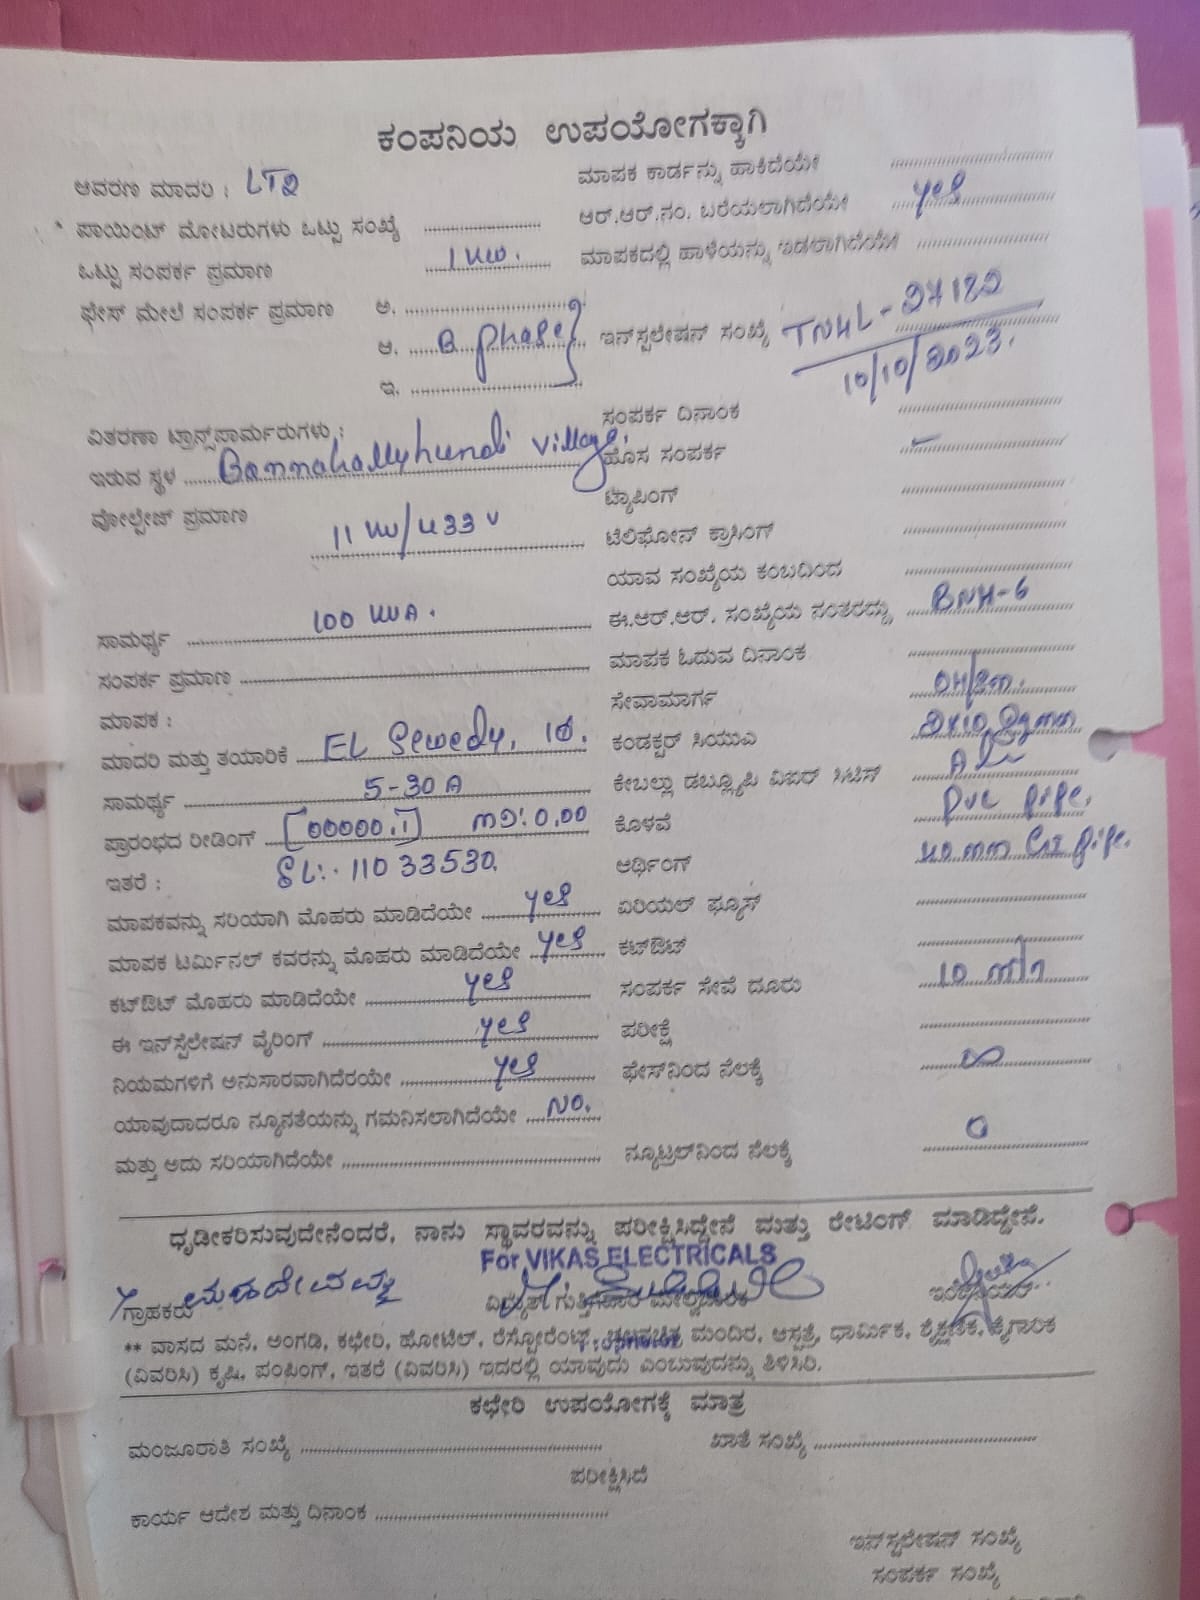 ಕಂಪನಿಯ ಉಪಯೋಗಕ್ಕಾಗಿ
ಆವರಣ ಮಾದರಿ : LT2
* ಪಾಯಿಂಟ್ ಮೋಟರುಗಳು ಒಟ್ಟು ಸಂಖ್ಯೆ
ಒಟ್ಟು ಸಂಪರ್ಕ ಪ್ರಮಾಣ 1 KW.
ಫೇಸ್ ಮೇಲೆ ಸಂಪರ್ಕ ಪ್ರಮಾಣ ಅ.
ಆ. B phase
ಇ.
ವಿತರಣಾ ಟ್ರಾನ್ಸ್‌ಫಾರ್ಮರುಗಳು :
ಇರುವ ಸ್ಥಳ Bannahallyhundi village.
ವೋಲ್ಟೇಜ್ ಪ್ರಮಾಣ 11 KV/433 V
ಸಾಮರ್ಥ್ಯ 100 KVA.
ಸಂಪರ್ಕ ಪ್ರಮಾಣ
ಮಾಪಕ :
ಮಾದರಿ ಮತ್ತು ತಯಾರಿಕೆ EL Sewedy, 1Ø.
ಸಾಮರ್ಥ್ಯ 5-30 A
ಪ್ರಾರಂಭದ ರೀಡಿಂಗ್ [00000.1] MD: 0.00
ಇತರೆ : SL: 11033530.
ಮಾಪಕವನ್ನು ಸರಿಯಾಗಿ ಮೊಹರು ಮಾಡಿದೆಯೇ yes
ಮಾಪಕ ಟರ್ಮಿನಲ್ ಕವರನ್ನು ಮೊಹರು ಮಾಡಿದೆಯೇ yes
ಕಟ್‌ಔಟ್ ಮೊಹರು ಮಾಡಿದೆಯೇ yes
ಈ ಇನ್‌ಸ್ಟಲೇಷನ್ ವೈರಿಂಗ್ yes
ನಿಯಮಗಳಿಗೆ ಅನುಸಾರವಾಗಿದೆರಯೇ yes
ಯಾವುದಾದರೂ ನ್ಯೂನತೆಯನ್ನು ಗಮನಿಸಲಾಗಿದೆಯೇ NO.
ಮತ್ತು ಅದು ಸರಿಯಾಗಿದೆಯೇ
ಮಾಪಕ ಕಾರ್ಡನ್ನು ಹಾಕಿದೆಯೇ
ಆರ್.ಆರ್.ನಂ. ಬರೆಯಲಾಗಿದೆಯೇ yes
ಮಾಪಕದಲ್ಲಿ ಹಾಳೆಯನ್ನು ಇಡಲಾಗಿದೆಯೇ
ಇನ್‌ಸ್ಟಲೇಷನ್ ಸಂಖ್ಯೆ TNHL-27122
10/10/2023.
ಸಂಪರ್ಕ ದಿನಾಂಕ
ಹೊಸ ಸಂಪರ್ಕ
ಟ್ಯಾಪಿಂಗ್
ಟೆಲಿಫೋನ್ ಕ್ರಾಸಿಂಗ್
ಯಾವ ಸಂಖ್ಯೆಯ ಕಂಬದಿಂದ
ಈ.ಆರ್.ಆರ್. ಸಂಖ್ಯೆಯ ನಂತರದ್ದು BNH-6
ಮಾಪಕ ಓದುವ ದಿನಾಂಕ
ಸೇವಾಮಾರ್ಗ OH/Sm.
ಕಂಡಕ್ಟರ್ ಸಿಯುಎ 2x10 Sqmm
ಕೇಬಲ್ಲಾ ಡಬ್ಲ್ಯೂಪಿ ವಿಐಆರ್ ಸಿಟಿಸ್
ಕೊಳವೆ PVC pipe.
ಅರ್ಥಿಂಗ್ 40 mm GI pipe.
ಏರಿಯಲ್ ಫ್ಯೂಸ್
ಕಟ್‌ಔಟ್
ಸಂಪರ್ಕ ಸೇವೆ ದೂರು 10 m
ಪರೀಕ್ಷೆ
ಫೇಸ್‌ನಿಂದ ನೆಲಕ್ಕೆ ∞
ನ್ಯೂಟ್ರಲ್‌ನಿಂದ ನೆಲಕ್ಕೆ 0
ಧೃಡೀಕರಿಸುವುದೇನೆಂದರೆ, ನಾನು ಸ್ಥಾವರವನ್ನು ಪರೀಕ್ಷಿಸಿದ್ದೇನೆ ಮತ್ತು ರೇಟಿಂಗ್ ಮಾಡಿದ್ದೇನೆ.
For VIKAS ELECTRICALS
ಗ್ರಾಹಕರು ಮಹದೇವಮ್ಮ ವಿದ್ಯುತ್ ಗುತ್ತಿಗೆದಾರ ಮೇಲ್ವಿಚಾರಕ ಇಂಜಿನಿಯರ್
** ವಾಸದ ಮನೆ, ಅಂಗಡಿ, ಕಛೇರಿ, ಹೋಟೆಲ್, ರೆಸ್ಟೋರೆಂಟ್, ಚಲನಚಿತ್ರ ಮಂದಿರ, ಆಸ್ಪತ್ರೆ, ಧಾರ್ಮಿಕ, ಶೈಕ್ಷಣಿಕ, ಕೈಗಾರಿಕ
(ವಿವರಿಸಿ) ಕೃಷಿ, ಪಂಪಿಂಗ್, ಇತರೆ (ವಿವರಿಸಿ) ಇದರಲ್ಲಿ ಯಾವುದು ಎಂಬುವುದನ್ನು ತಿಳಿಸಿರಿ.
ಕಛೇರಿ ಉಪಯೋಗಕ್ಕೆ ಮಾತ್ರ
ಮಂಜೂರಾತಿ ಸಂಖ್ಯೆ ಖಾತೆ ಸಂಖ್ಯೆ
ಪರೀಕ್ಷಿಸಿದೆ
ಕಾರ್ಯ ಆದೇಶ ಮತ್ತು ದಿನಾಂಕ
ಇನ್‌ಸ್ಟಲೇಷನ್ ಸಂಖ್ಯೆ
ಸಂಪರ್ಕ ಸಂಖ್ಯೆ